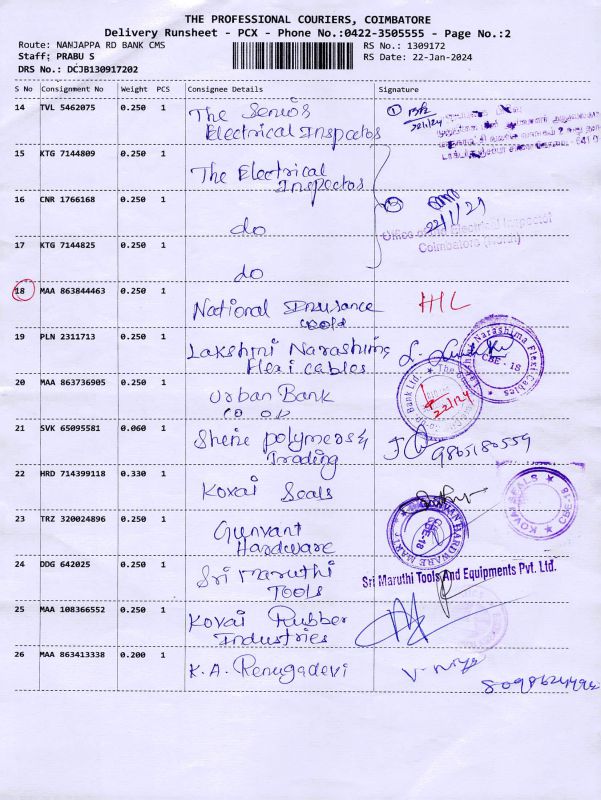 THE PROFESSIONAL COURIERS, COIMBATORE
Delivery Runsheet - PCX - Phone No.:0422-3505555 - Page No.:2
Route: NANJAPPA RD BANK CMS RS No.: 1309172
Staff: PRABU S RS Date: 22-Jan-2024
DRS No.: DCJB130917202
S No Consignment No Weight PCS Consignee Details Signature
14 TVL 5462075 0.250 1 The Senior
Electrical Inspector
22/1/24
15 KTG 7144809 0.250 1 The Electrical
Inspector
16 CNR 1766168 0.250 1 do
22/1/24
Office of the Electrical Inspector
Coimbatore (North)
17 KTG 7144825 0.250 1 do
18 MAA 863844463 0.250 1 National Insurance
19 PLN 2311713 0.250 1 Lakshmi Narashima
Flexi cables
Narashima Flexi Cables
CBE - 18
20 MAA 863736905 0.250 1 Urban Bank
CO OP
22/1/24
21 SVK 65095581 0.060 1 Shene polymers &
Trading
9865180559
22 HRD 714399118 0.330 1 Kovai Seals
KOVAI SEALS
CBE-18
23 TRZ 320024896 0.250 1 Gunvant
Hardware
HARDWARE MART
CBE-18
24 DDG 642025 0.250 1 Sri Maruthi
TOOLS
Sri Maruthi Tools And Equipments Pvt. Ltd.
25 MAA 108366552 0.250 1 Kovai Rubber
Industries
26 MAA 863413338 0.200 1 K.A. Renugadevi